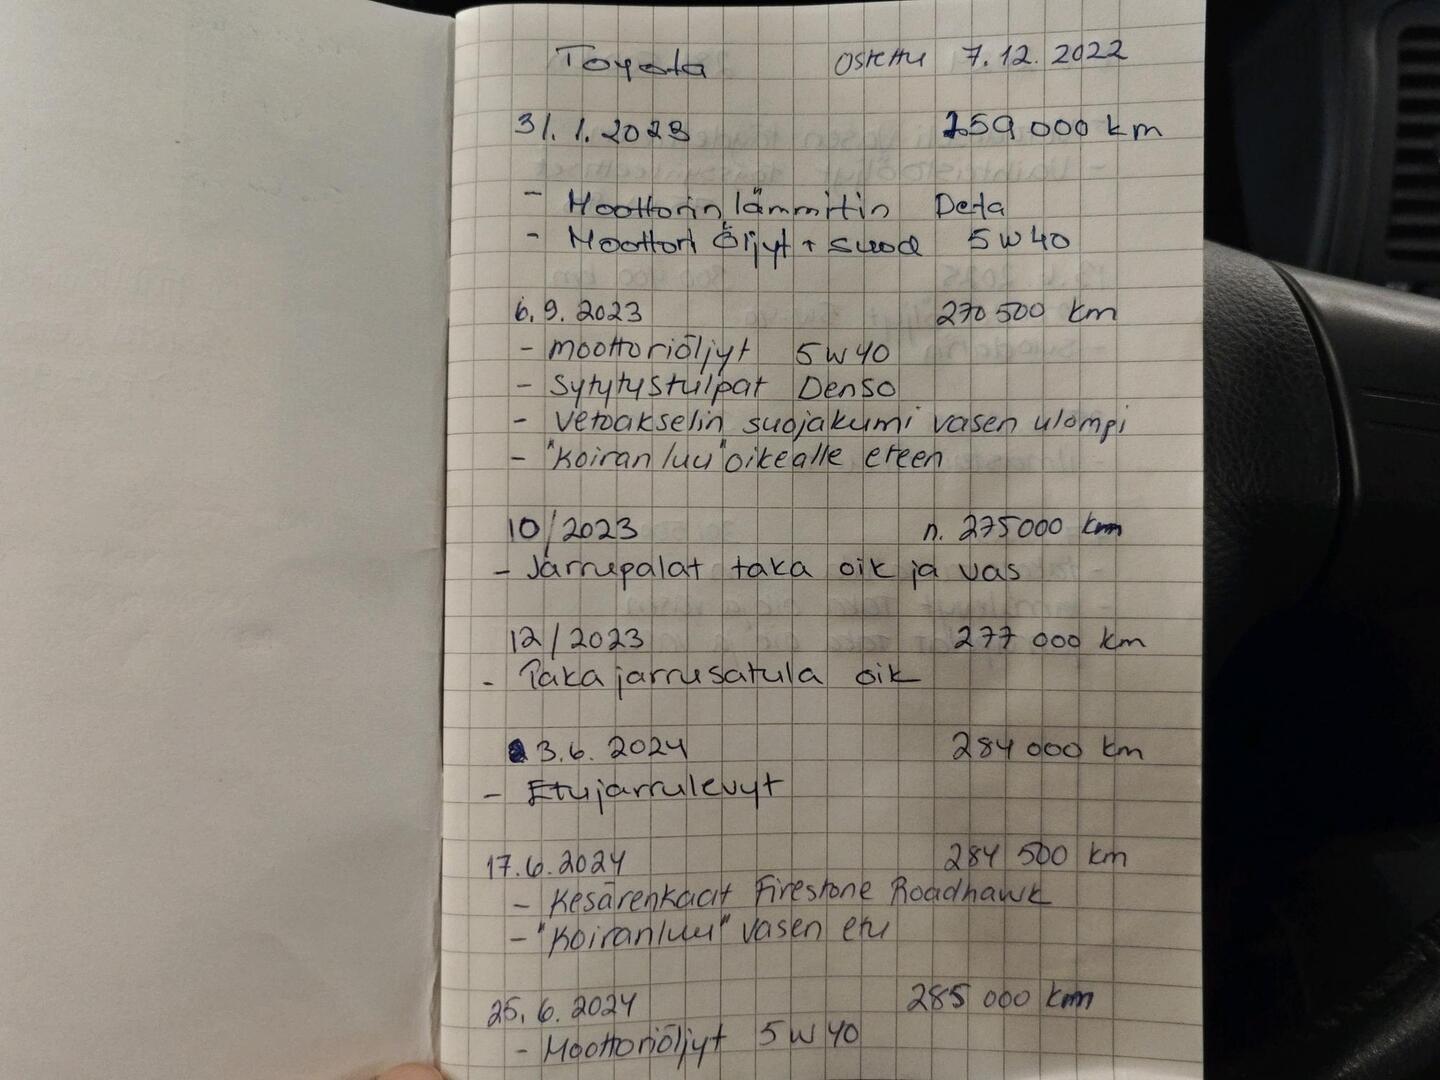 Toyota Ostettu 7.12.2022
31.1.2023 259 000 km
- Moottorin lämmitin Defa
- Moottori Öljyt + suod 5w40
6.9.2023 270 500 km
- moottoriöljyt 5w40
- Sytytystulpat Denso
- Vetoakselin suojakumi vasen ulompi
- "Koiranluu" oikealle eteen
10/2023 n. 275000 km
- Jarrupalat taka oik ja vas
12/2023 277 000 km
- Takajarrusatula oik
3.6.2024 284 000 km
- Etujarrulevyt
17.6.2024 284 500 km
- Kesärenkaat Firestone Roadhawk
- "Koiranluu" vasen etu
25.6.2024 285 000 km
- Moottoriöljyt 5w40